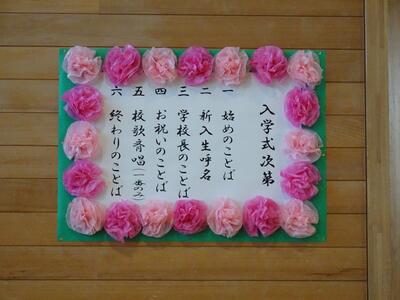 入学式次第
一 始めのことば
二 新入生呼名
三 学校長のことば
四 お祝いのことば
五 校歌斉唱(一番のみ)
六 終わりのことば